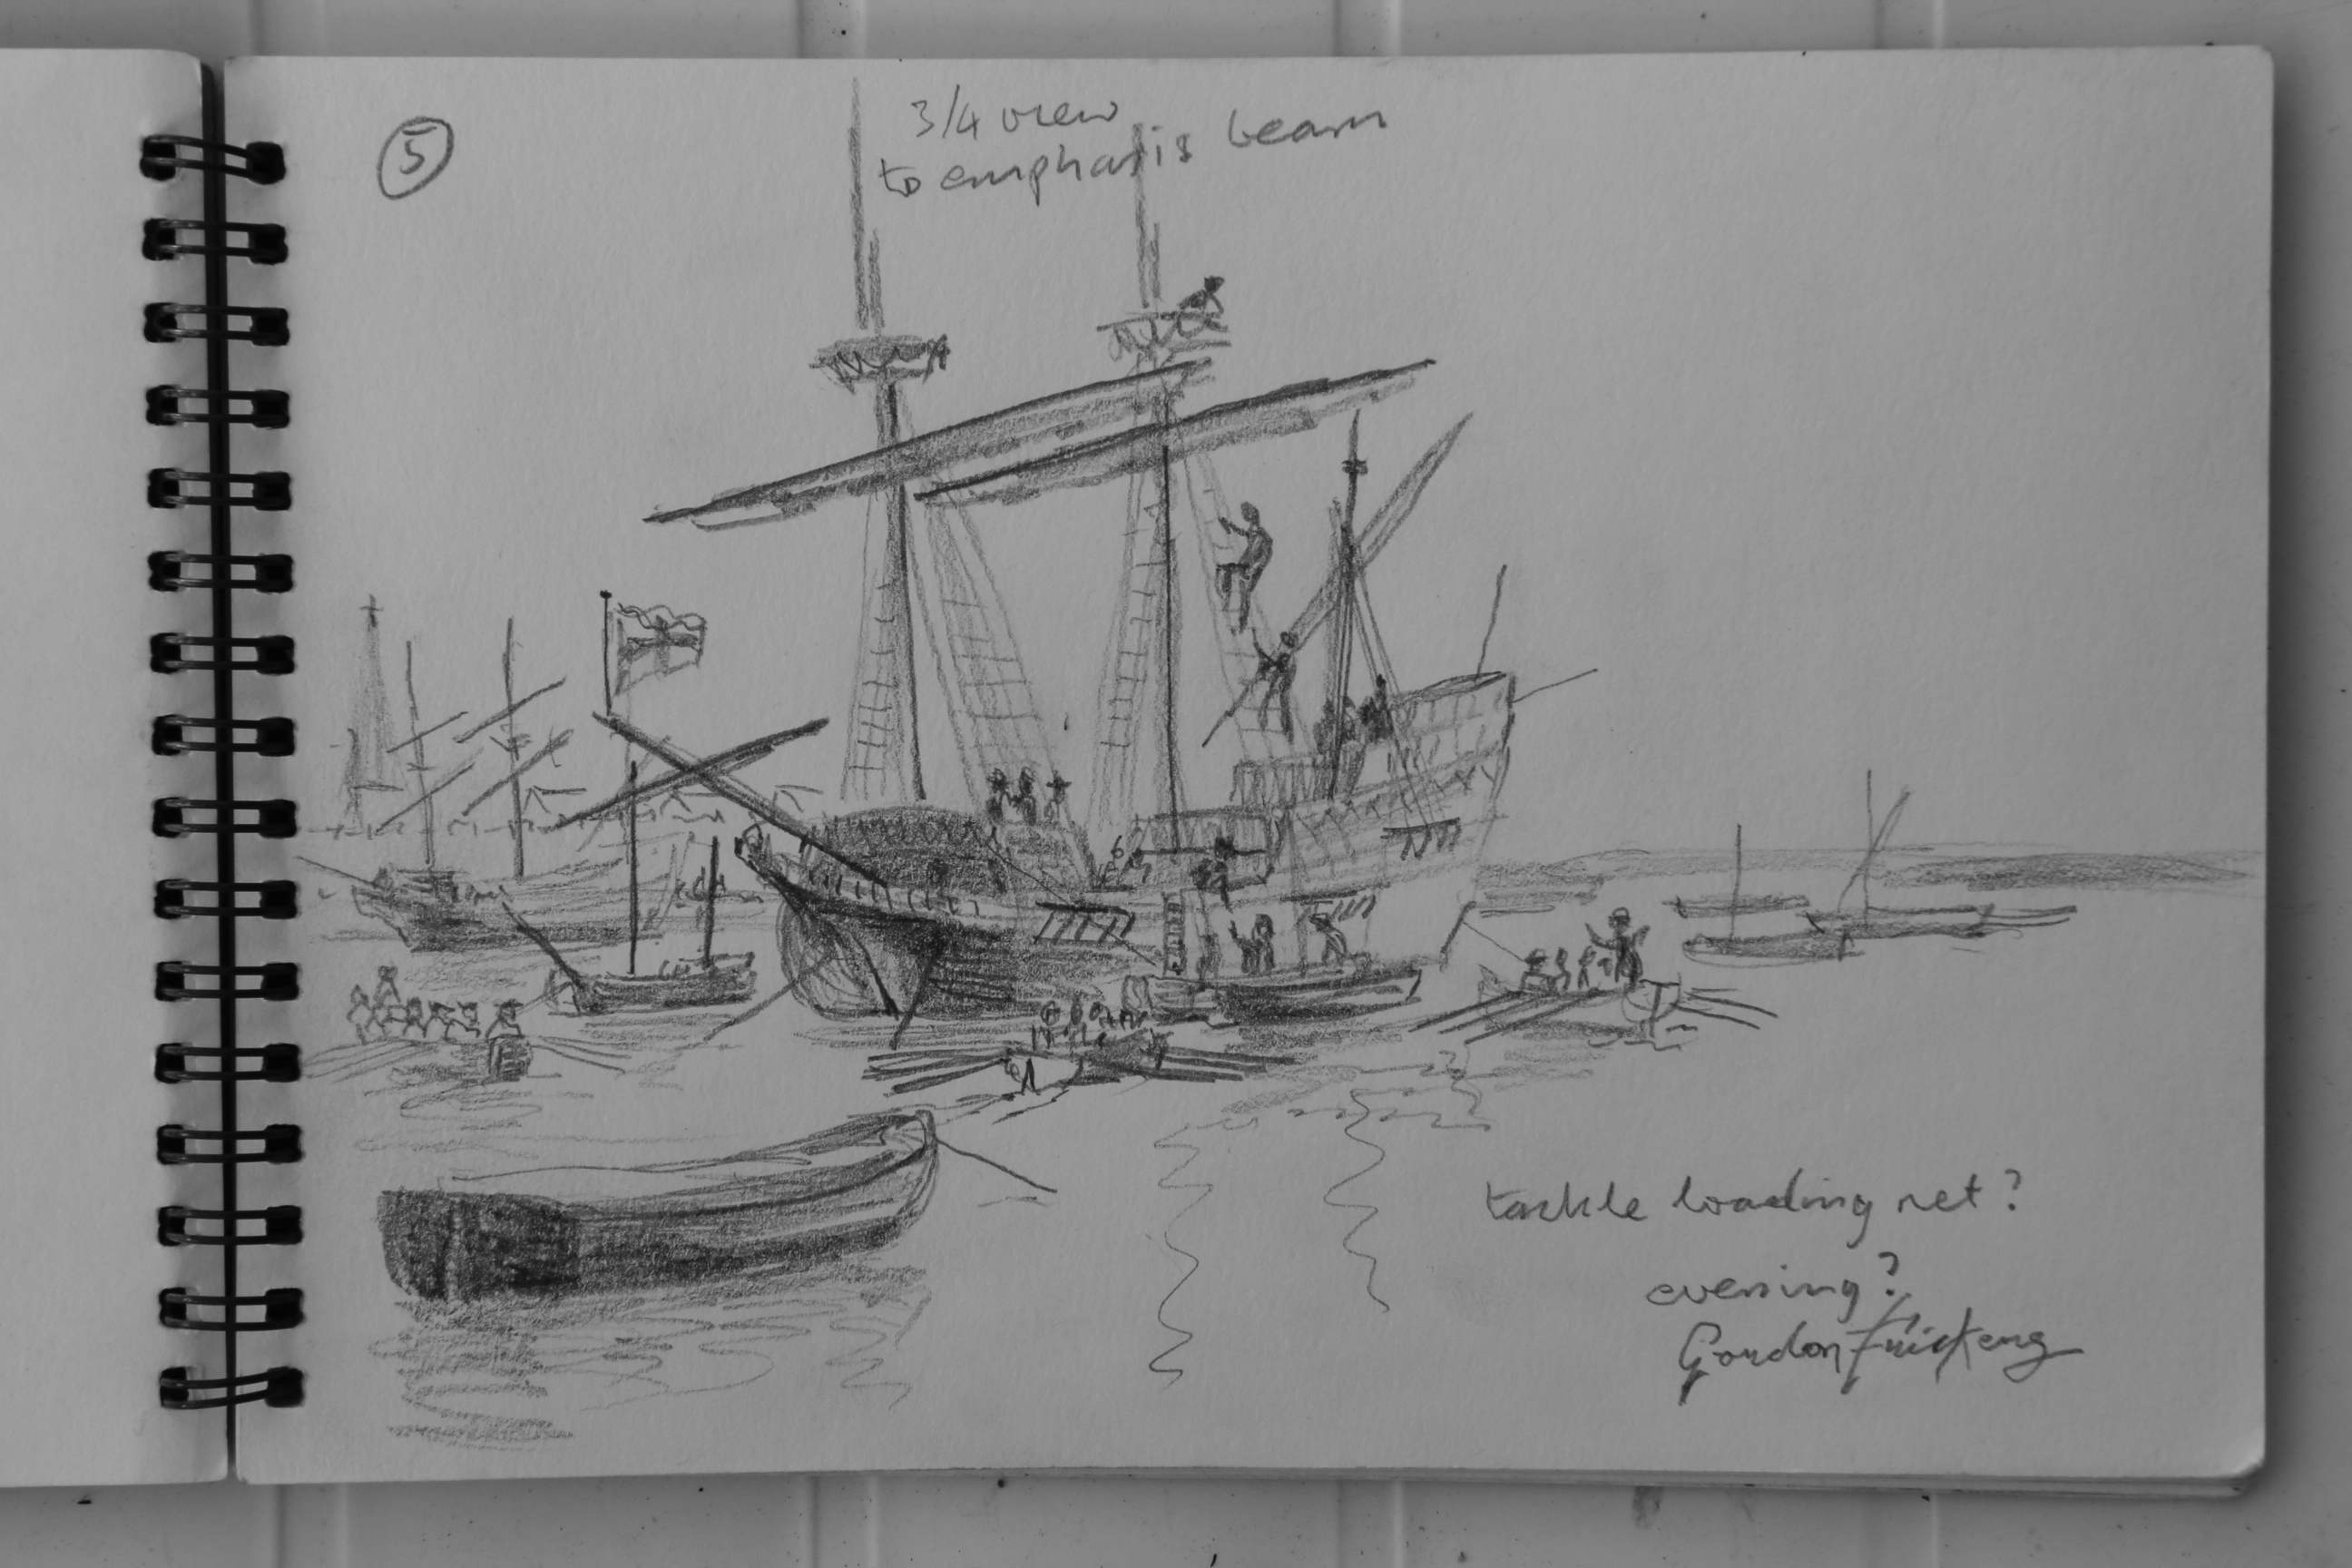 5
3/4 view
to emphasis beam
tackle loading net?
evening?
Gordon